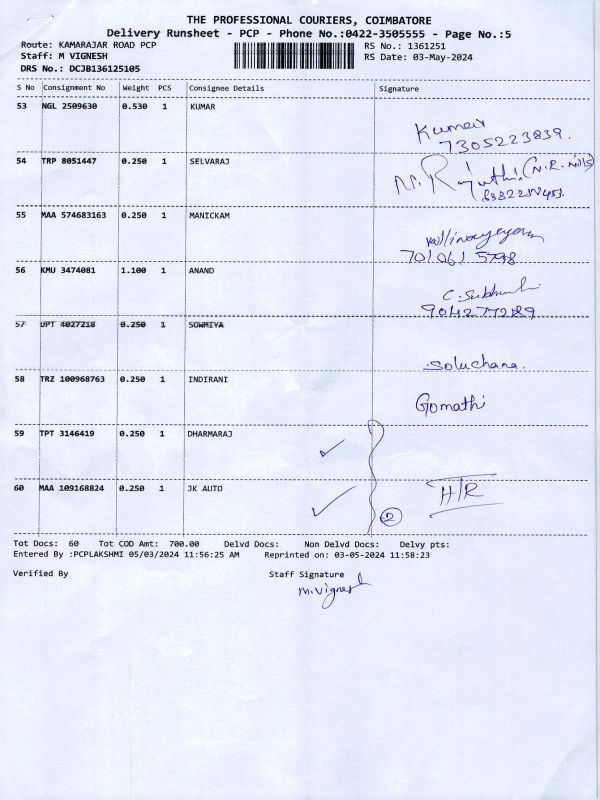 THE PROFESSIONAL COURIERS, COIMBATORE
Delivery Runsheet - PCP - Phone No.:0422-3505555 - Page No.:5
Route: KAMARAJAR ROAD PCP RS No.: 1361251
Staff: M VIGNESH RS Date: 03-May-2024
DRS No.: DCJB136125105
S No Consignment No Weight PCS Consignee Details Signature
53 NGL 2509630 0.530 1 KUMAR
Kumar
7305223839.
54 TRP 8051447 0.250 1 SELVARAJ
(N.R. Mills)
55 MAA 574683163 0.250 1 MANICKAM
7010615798
56 KMU 3474081 1.100 1 ANAND
C. Subhu
57 UPT 4027218 0.250 1 SOWMIYA
Soluchana.
58 TRZ 100968763 0.250 1 INDIRANI
Gomathi
59 TPT 3146419 0.250 1 DHARMARAJ
60 MAA 109168824 0.250 1 JK AUTO
H/R
2
Tot Docs: 60 Tot COD Amt: 700.00 Delvd Docs: Non Delvd Docs: Delvy pts:
Entered By :PCPLAKSHMI 05/03/2024 11:56:25 AM Reprinted on: 03-05-2024 11:58:23
Verified By Staff Signature
M.Vignesh